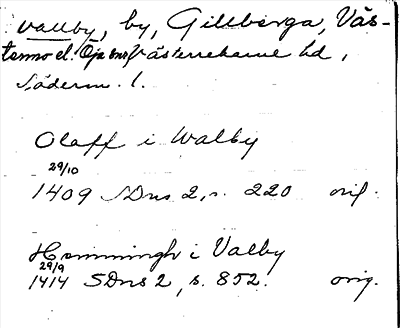 Vallby, by, Gillberga, Väs-
termo el. Öja snr, Västerrekarne hd,
Söderm. l.
Olaff i Walby
29/10
1409 SDns 2, s. 220 orig.
Hemmingh i Valby
29/9
1414 SDns 2, s. 852. orig.